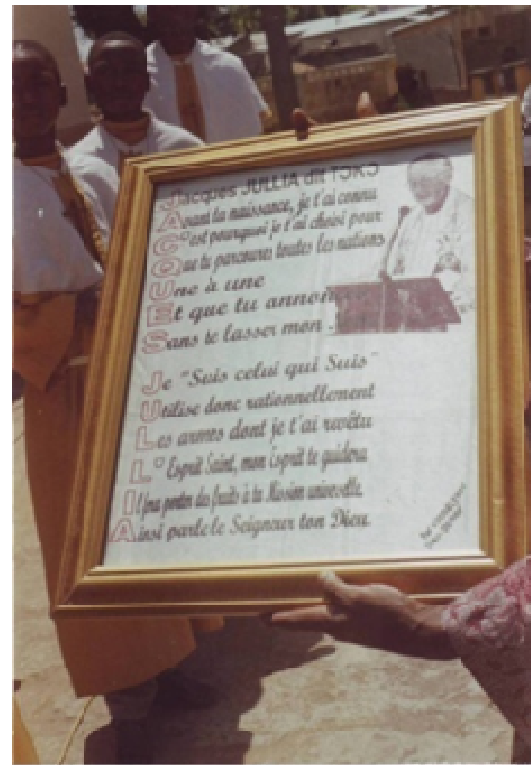 Jacques JULLIA dit TƆKƆ
JACQUES
Avant la naissance, je t'ai connu
C'est pourquoi je t'ai choisi pour
Que tu parcoures toutes les nations
Une à une
Et que tu
Sans te lasser mon
JULLIA
Je "Suis celui qui Suis"
Utilise donc rationnellement
Les armes dont je t'ai revêtu
L'Esprit Saint, mon Esprit te guidera
Il fera porter des fruits à ta Mission universelle
Ainsi parle le Seigneur ton Dieu